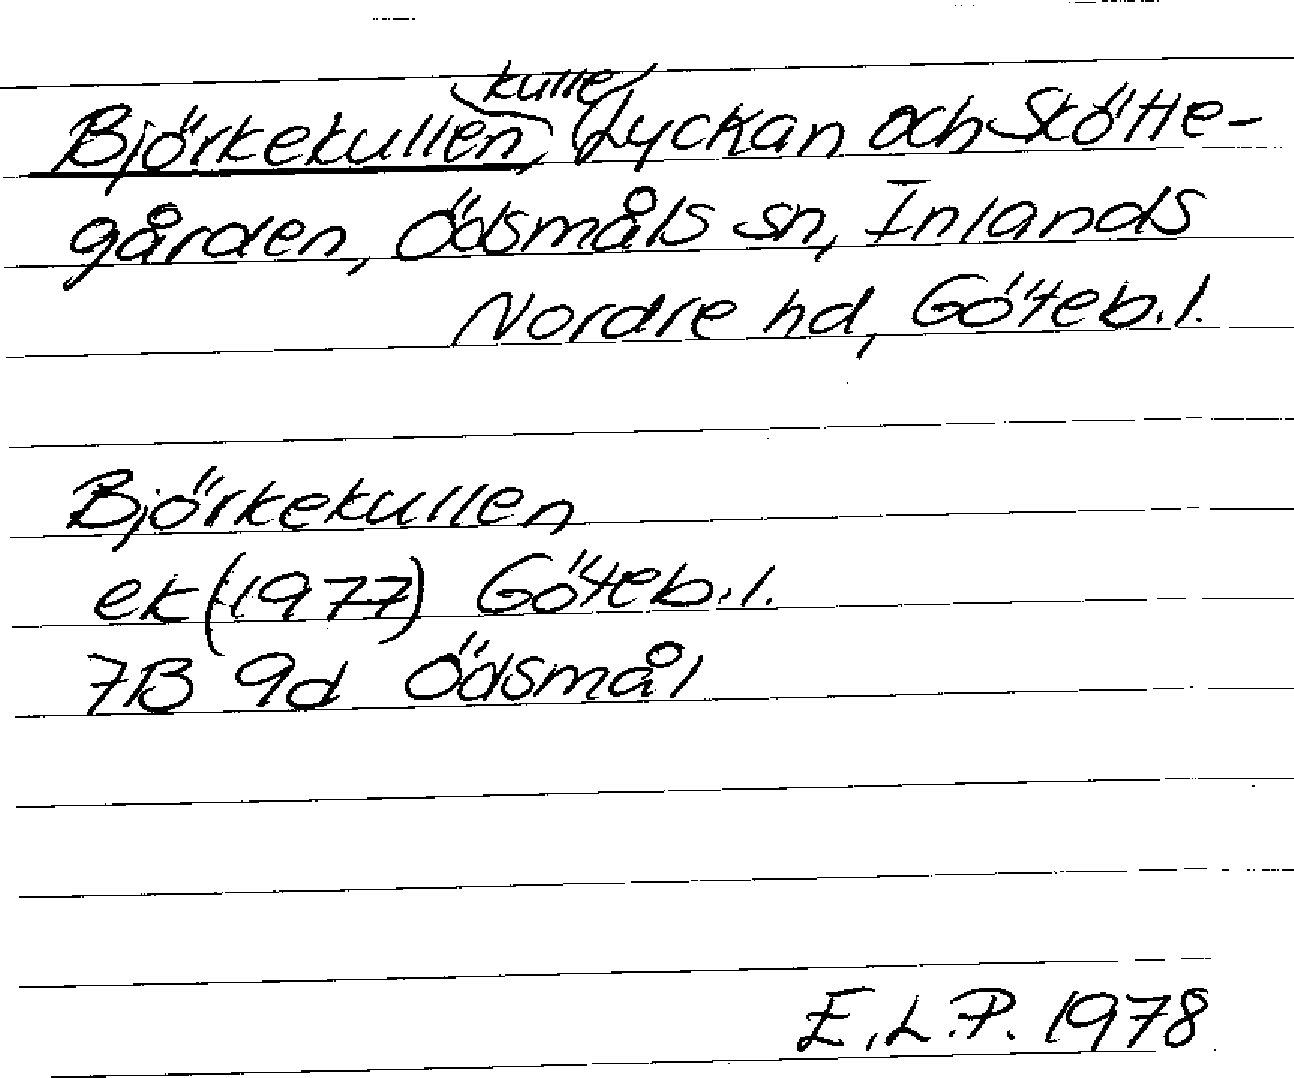 kulle
Björkekullen, Lyckan och Skötte-
gården, Ödsmåls sn, Inlands
Nordre hd, Göteb.l.
Björkekullen
ek (1977) Göteb.l.
7B 9d Ödsmål
E.L.P. 1978